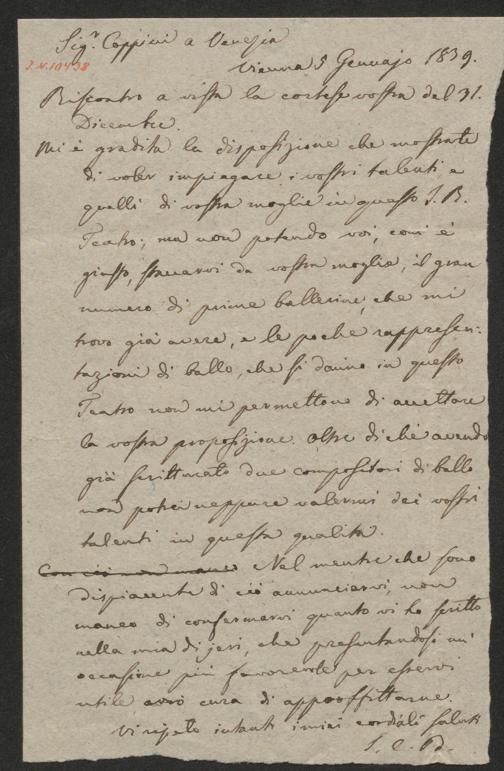 Sig.r Coppini a Venezia
J.N. 10438
Vienna 5 Gennajo 1839.
Riscontro a vista la cortese vostra del 31.
Dicembre.
Mi è gradita la disposizione che mostrate
di voler impiegare i vostri talenti e
quelli di vostra moglie in questo I. R.
Teatro; ma non potendo voi, com'è
giusto, staccarvi da vostra moglie, il gran
numero di prime ballerine, che mi
trovo già avere, e le poche rappresen-
tazioni di ballo, che si danno in questo
Teatro non mi permettono di accettare
la vostra proposizione. Oltre di chè avendo
già scritturato due compositori di ballo
non potrei neppure valermi dei vostri
talenti in questa qualità.
Con ciò non manco Nel mentre che sono
dispiacente di ciò annunciarvi, non
manco di confermarvi quanto vi ho scritto
nella mia di jeri, che presentandosi un'
occasione più favorevole per esservi
utile avrò cura di approffittarne.
Vi ripeto intanto i miei cordiali saluti